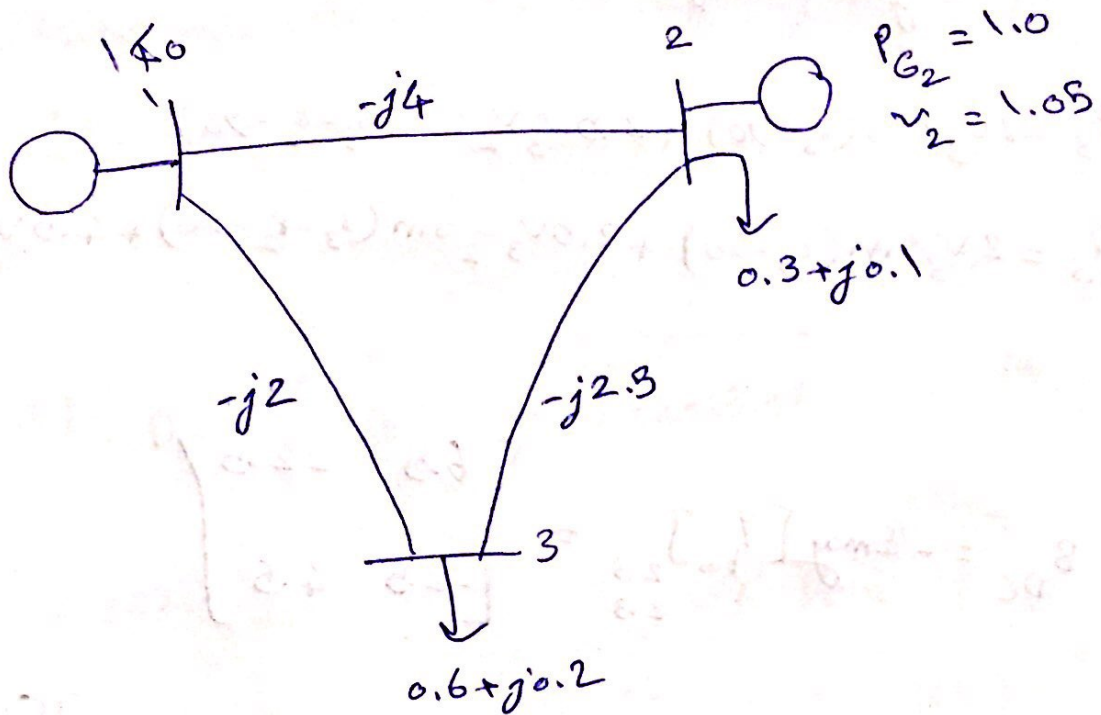 1∠0
2
P_G2 = 1.0
v_2 = 1.05
1
-j4
0.3+j0.1
-j2
-j2.5
3
0.6+j0.2